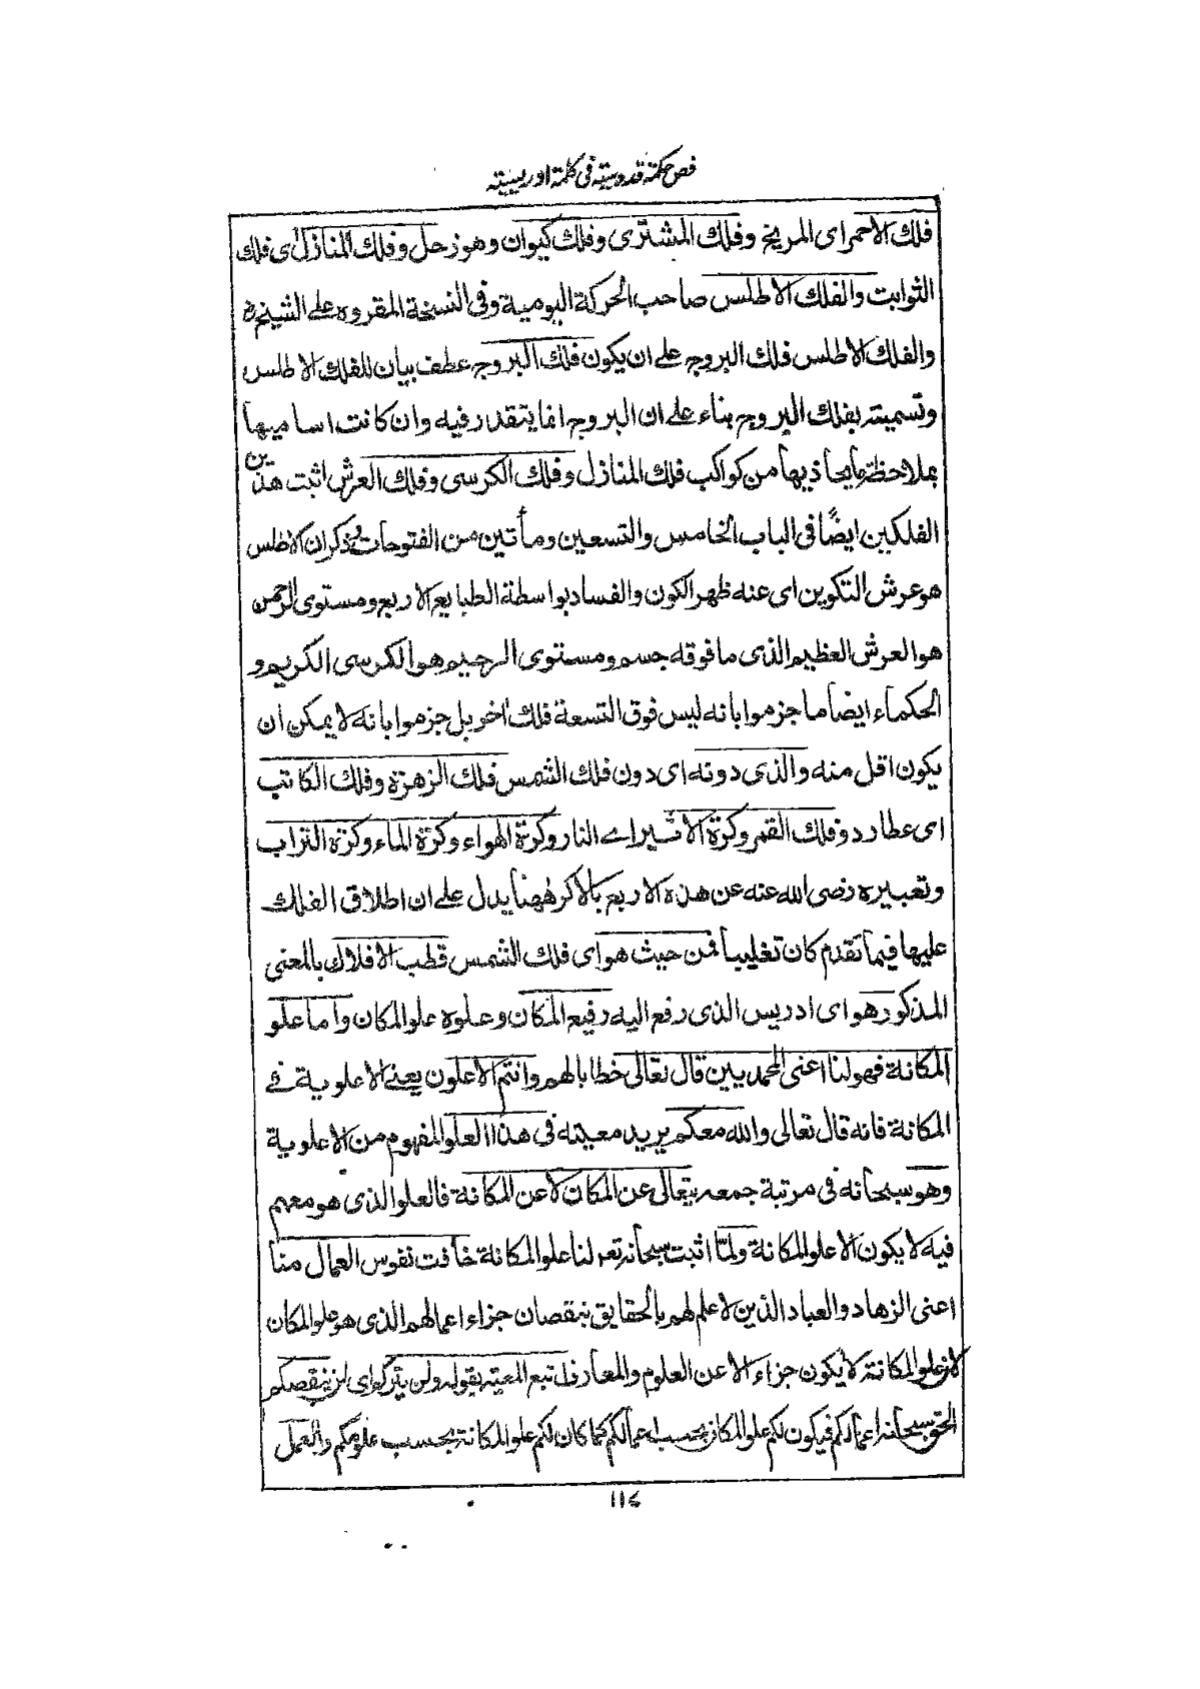 فص حكمة قدوسية في كلمة ادريسية
فلك الاحمر اى المريخ وفلك المشترى وفلك كيوان وهو زحل وفلك المنازل اى فلك
الثوابت والفلك الاطلس صاحب الحركة اليومية وفى النسخة المقروه على الشيخ رض
والفلك الاطلس فلك البروج على ان يكون فلك البروج عطف بيان للفلك الاطلس
وتسميته بفلك البروج بناء على ان البروج انما يتقدر فيه وان كانت اساميها
بملاحظة ما يحاذيها من كواكب فلك المنازل وفلك الكرسى وفلك العرش اثبت هذين
الفلكين ايضًا فى الباب الخامس والتسعين ومأتين من الفتوحات يذكر ان الاطلس
هو عرش التكوين اى عنه ظهر الكون والفساد بواسطة الطبايع الاربع ومستوى الرحمن
هو العرش العظيم الذى ما فوقه جسم ومستوى الرحيم هو الكرسى الكريم و
الحكماء ايضا ما جزموا بانه ليس فوق التسعة فلك اخر بل جزموا بانه لا يمكن ان
يكون اقل منه والذى دونه اى دون فلك الشمس فلك الزهرة وفلك الكاتب
اى عطارد وفلك القمر وكرة الاثير اے النار وكرة الهواء وكرة الماء وكرة التراب
وتعبيره رضى الله عنه عن هذه الاربع بالاكر ههنا يدل على ان اطلاق الفلك
عليها فيما تقدم كان تغليبا فمن حيث هو اى فلك الشمس قطب الافلاك بالمعنى
المذكور هو اى ادريس الذى رفع اليه رفيع المكان وعلوه علو المكان واما علو
المكانة فهو لنا اعنى المحمديين قال تعالى خطابا لهم وانتم الاعلون يعنى الاعلوية فے
المكانة فانه قال تعالى والله معكم يريد معيته فى هذا العلو المفهوم من الاعلوية
وهو سبحانه فى مرتبة جمعه يتعالى عن المكان لا عن المكانة فالعلو الذى هو معهم
فيه لا يكون الا علو المكانة ولمّا اثبت سبحانه تعـ لنا علو المكانة خافت نفوس العمال منا
اعنى الزهاد والعباد الذين لا علم لهم بالحقايق نبقصان جزاء اعمالهم الذى هو علو المكان
لان علو المكانة لا يكون جزاء الا عن العلوم والمعارف تبع المعية بقوله ولن يتركم اى لن ينقصكم
الحق سبحانه اعمالكم فيكون لكم علو المكان بحسب اعمالكم كما كان لكم علو المكانة بحسب علومكم والعمل
١١٤